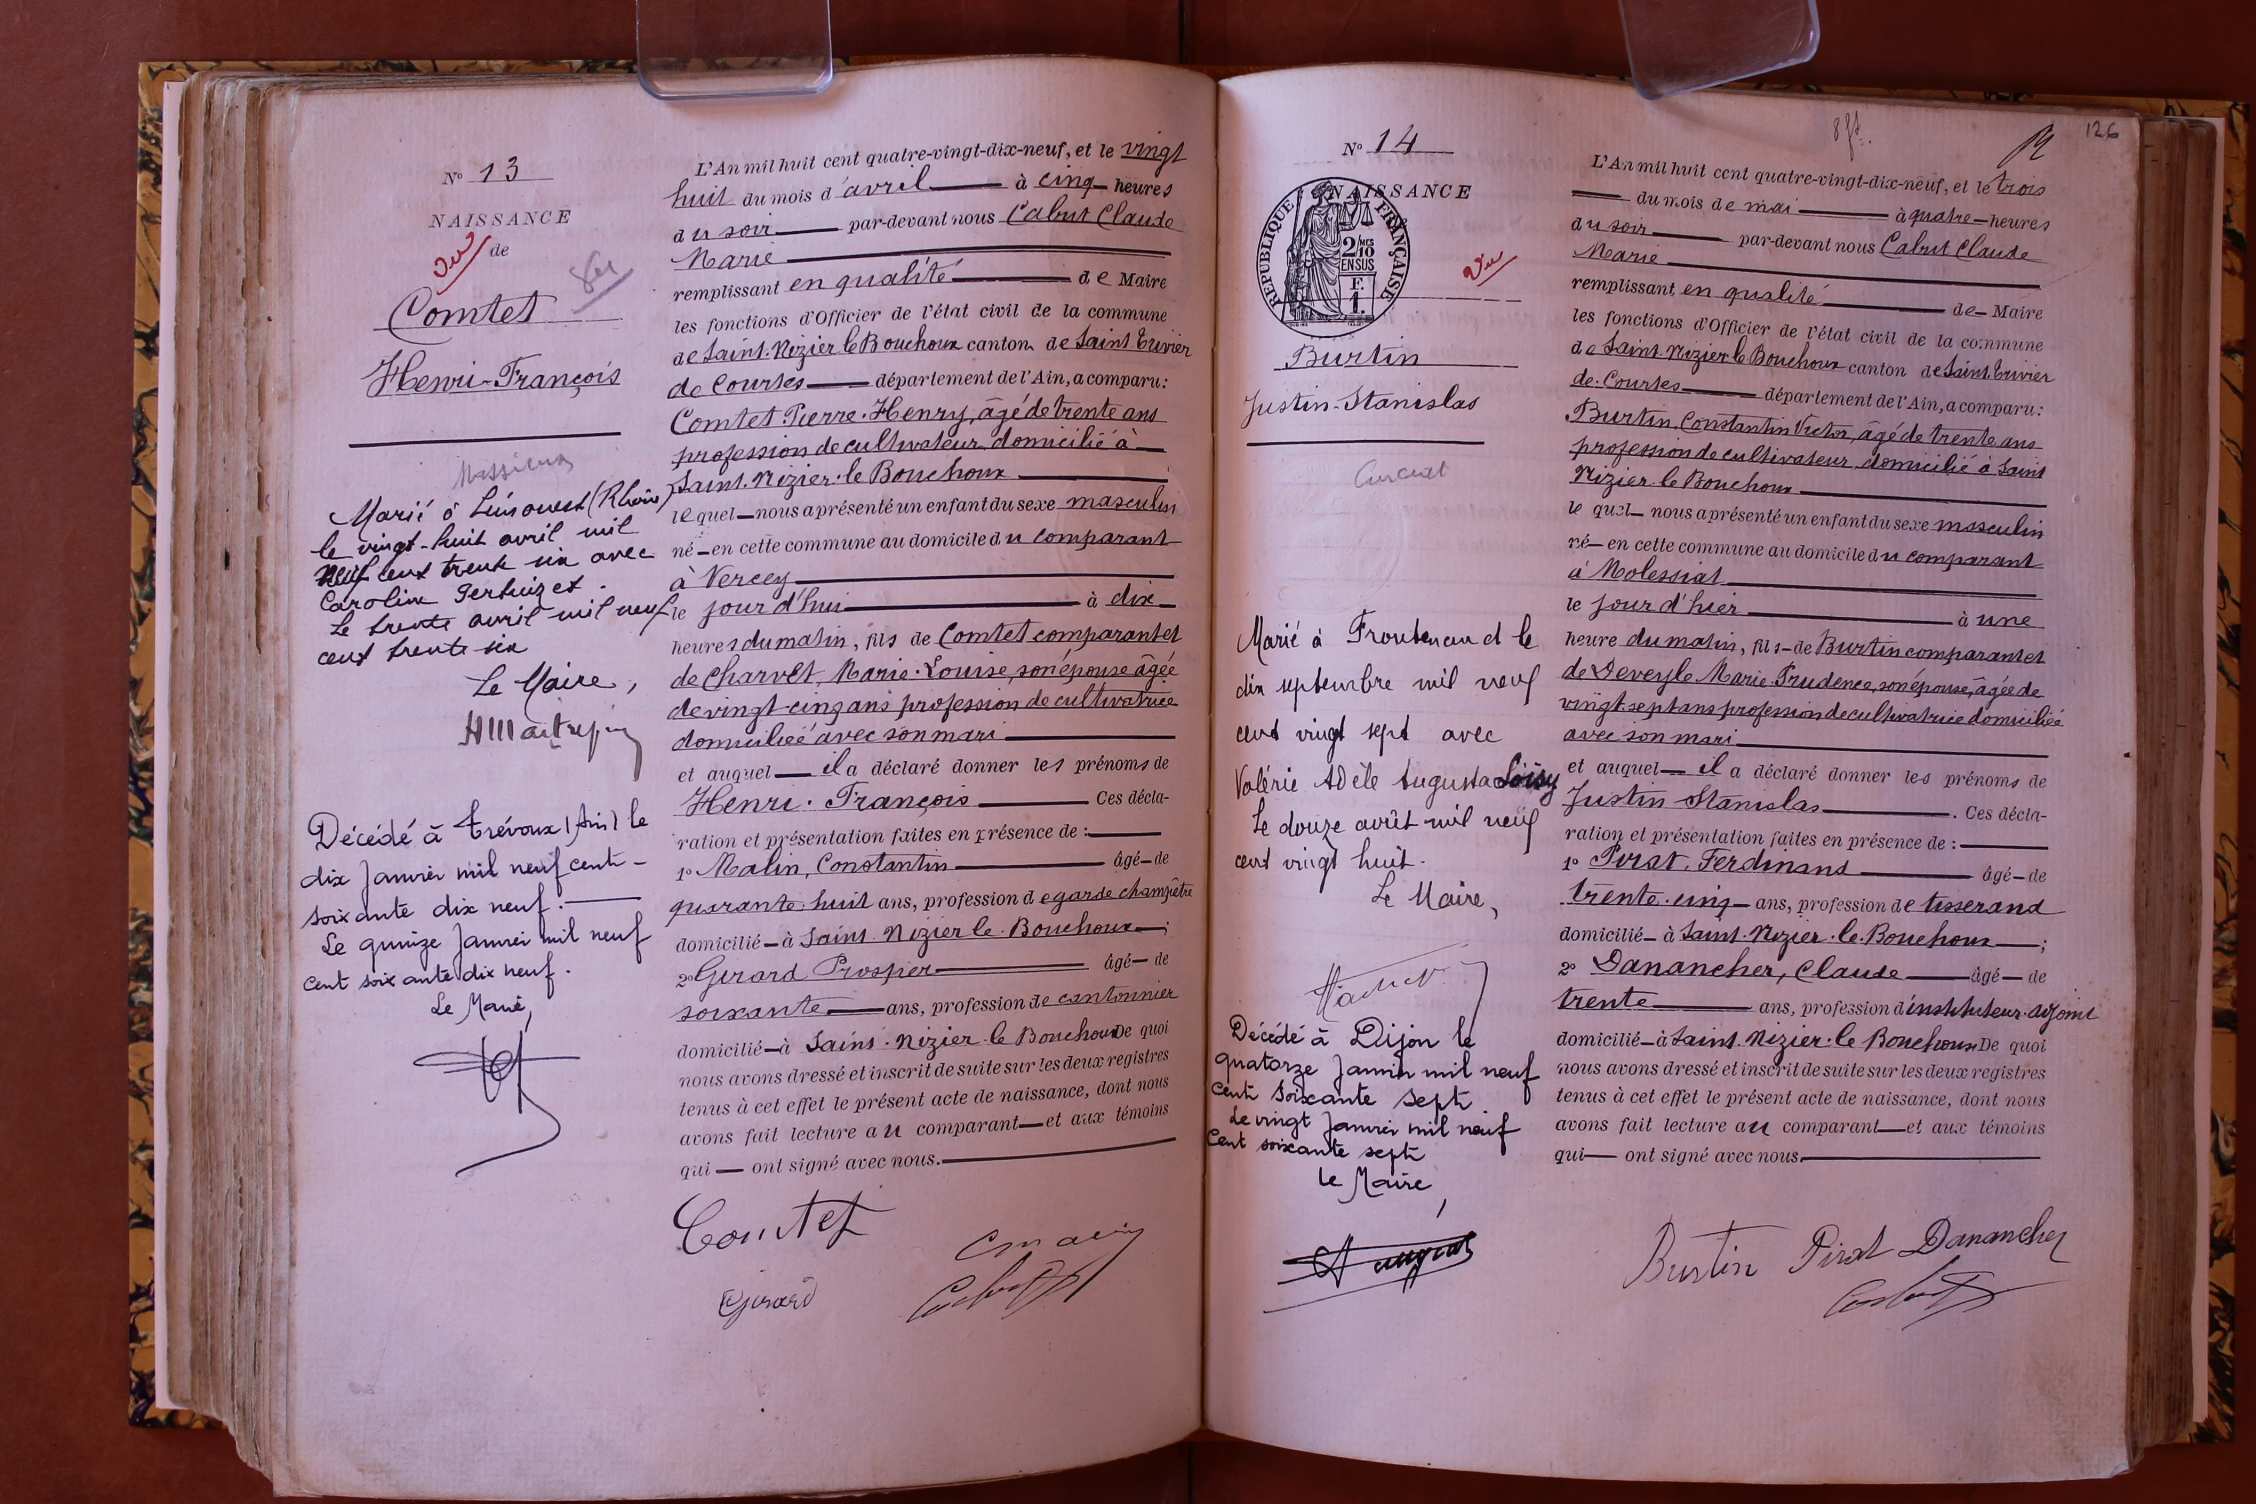 N° 13
NAISSANCE
de
Vu
Comtet
Henri-François
Marié à Limonest (Rhône)
le vingt-huit avril mil
neuf cent trente six avec
Caroline
Le trente avril mil neuf
cent trente six
Le Maire,
Décédé à Trévoux (Ain) le
dix Janvier mil neuf cent-
soixante dix neuf.
Le quinze Janvier mil neuf
cent soixante dix neuf.
Le Maire,
L'An mil huit cent quatre-vingt-dix-neuf, et le vingt
huit du mois d'avril à cinq heures
du soir par-devant nous Cabut Claude
Marie
remplissant en qualité de Maire
les fonctions d'Officier de l'état civil de la commune
de Saint-Nizier le Bouchoux canton de Saint Trivier
de Courtes département de l'Ain, a comparu:
Comtet Pierre-Henry, âgé de trente ans
profession de cultivateur domicilié à
Saint-Nizier-le Bouchoux
lequel nous a présenté un enfant du sexe masculin
né en cette commune au domicile du comparant
à Vercey
le jour d'hui à dix
heures du matin, fils de Comtet comparant et
de Charvet, Marie-Louise, son épouse âgée
de vingt-cinq ans profession de cultivatrice
domiciliée avec son mari
et auquel il a déclaré donner les prénoms de
Henri-François Ces décla-
ration et présentation faites en présence de:
1° Malin, Constantin âgé de
quarante-huit ans, profession de garde champêtre
domicilié à Saint-Nizier le-Bouchoux;
2° Girard Prosper âgé de
soixante ans, profession de cantonnier
domicilié à Saint-Nizier-le Bouchoux De quoi
nous avons dressé et inscrit de suite sur les deux registres
tenus à cet effet le présent acte de naissance, dont nous
avons fait lecture au comparant et aux témoins
qui ont signé avec nous.
Comtet
Girard
126
N° 14
NAISSANCE
RÉPUBLIQUE FRANÇAISE
2/10 MES
EN SUS
F.
1.
Vu
Burtin
Justin-Stanislas
Curciat
Marié à Frontenaud le
dix septembre mil neuf
cent vingt sept avec
Valérie Adèle Augusta Loisy
Le douze août mil neuf
cent vingt huit.
Le Maire,
Décédé à Dijon le
quatorze Janvier mil neuf
cent soixante sept
Le vingt Janvier mil neuf
cent soixante sept
le Maire,
L'An mil huit cent quatre-vingt-dix-neuf, et le trois
du mois de mai à quatre heures
du soir par-devant nous Cabut Claude
Marie
remplissant en qualité de Maire
les fonctions d'Officier de l'état civil de la commune
de Saint-Nizier le Bouchoux canton de Saint Trivier
de-Courtes département de l'Ain, a comparu:
Burtin, Constantin Victor, âgé de trente ans
profession de cultivateur domicilié à Saint
Nizier-le Bouchoux
lequel nous a présenté un enfant du sexe masculin
né en cette commune au domicile du comparant
à Molessiat
le jour d'hier à une
heure du matin, fils de Burtin comparant et
de Deveyle Marie-Prudence, son épouse, âgée de
vingt-sept ans profession de cultivatrice domiciliée
avec son mari
et auquel il a déclaré donner les prénoms de
Justin Stanislas. Ces décla-
ration et présentation faites en présence de:
1° Pirat, Ferdinand âgé de
trente-cinq ans, profession de tisserand
domicilié à Saint-Nizier-le-Bouchoux;
2° Danancher, Claude âgé de
trente ans, profession d'instituteur-adjoint
domicilié à Saint-Nizier-le Bouchoux De quoi
nous avons dressé et inscrit de suite sur les deux registres
tenus à cet effet le présent acte de naissance, dont nous
avons fait lecture au comparant et aux témoins
qui ont signé avec nous.
Burtin Pirat Danancher